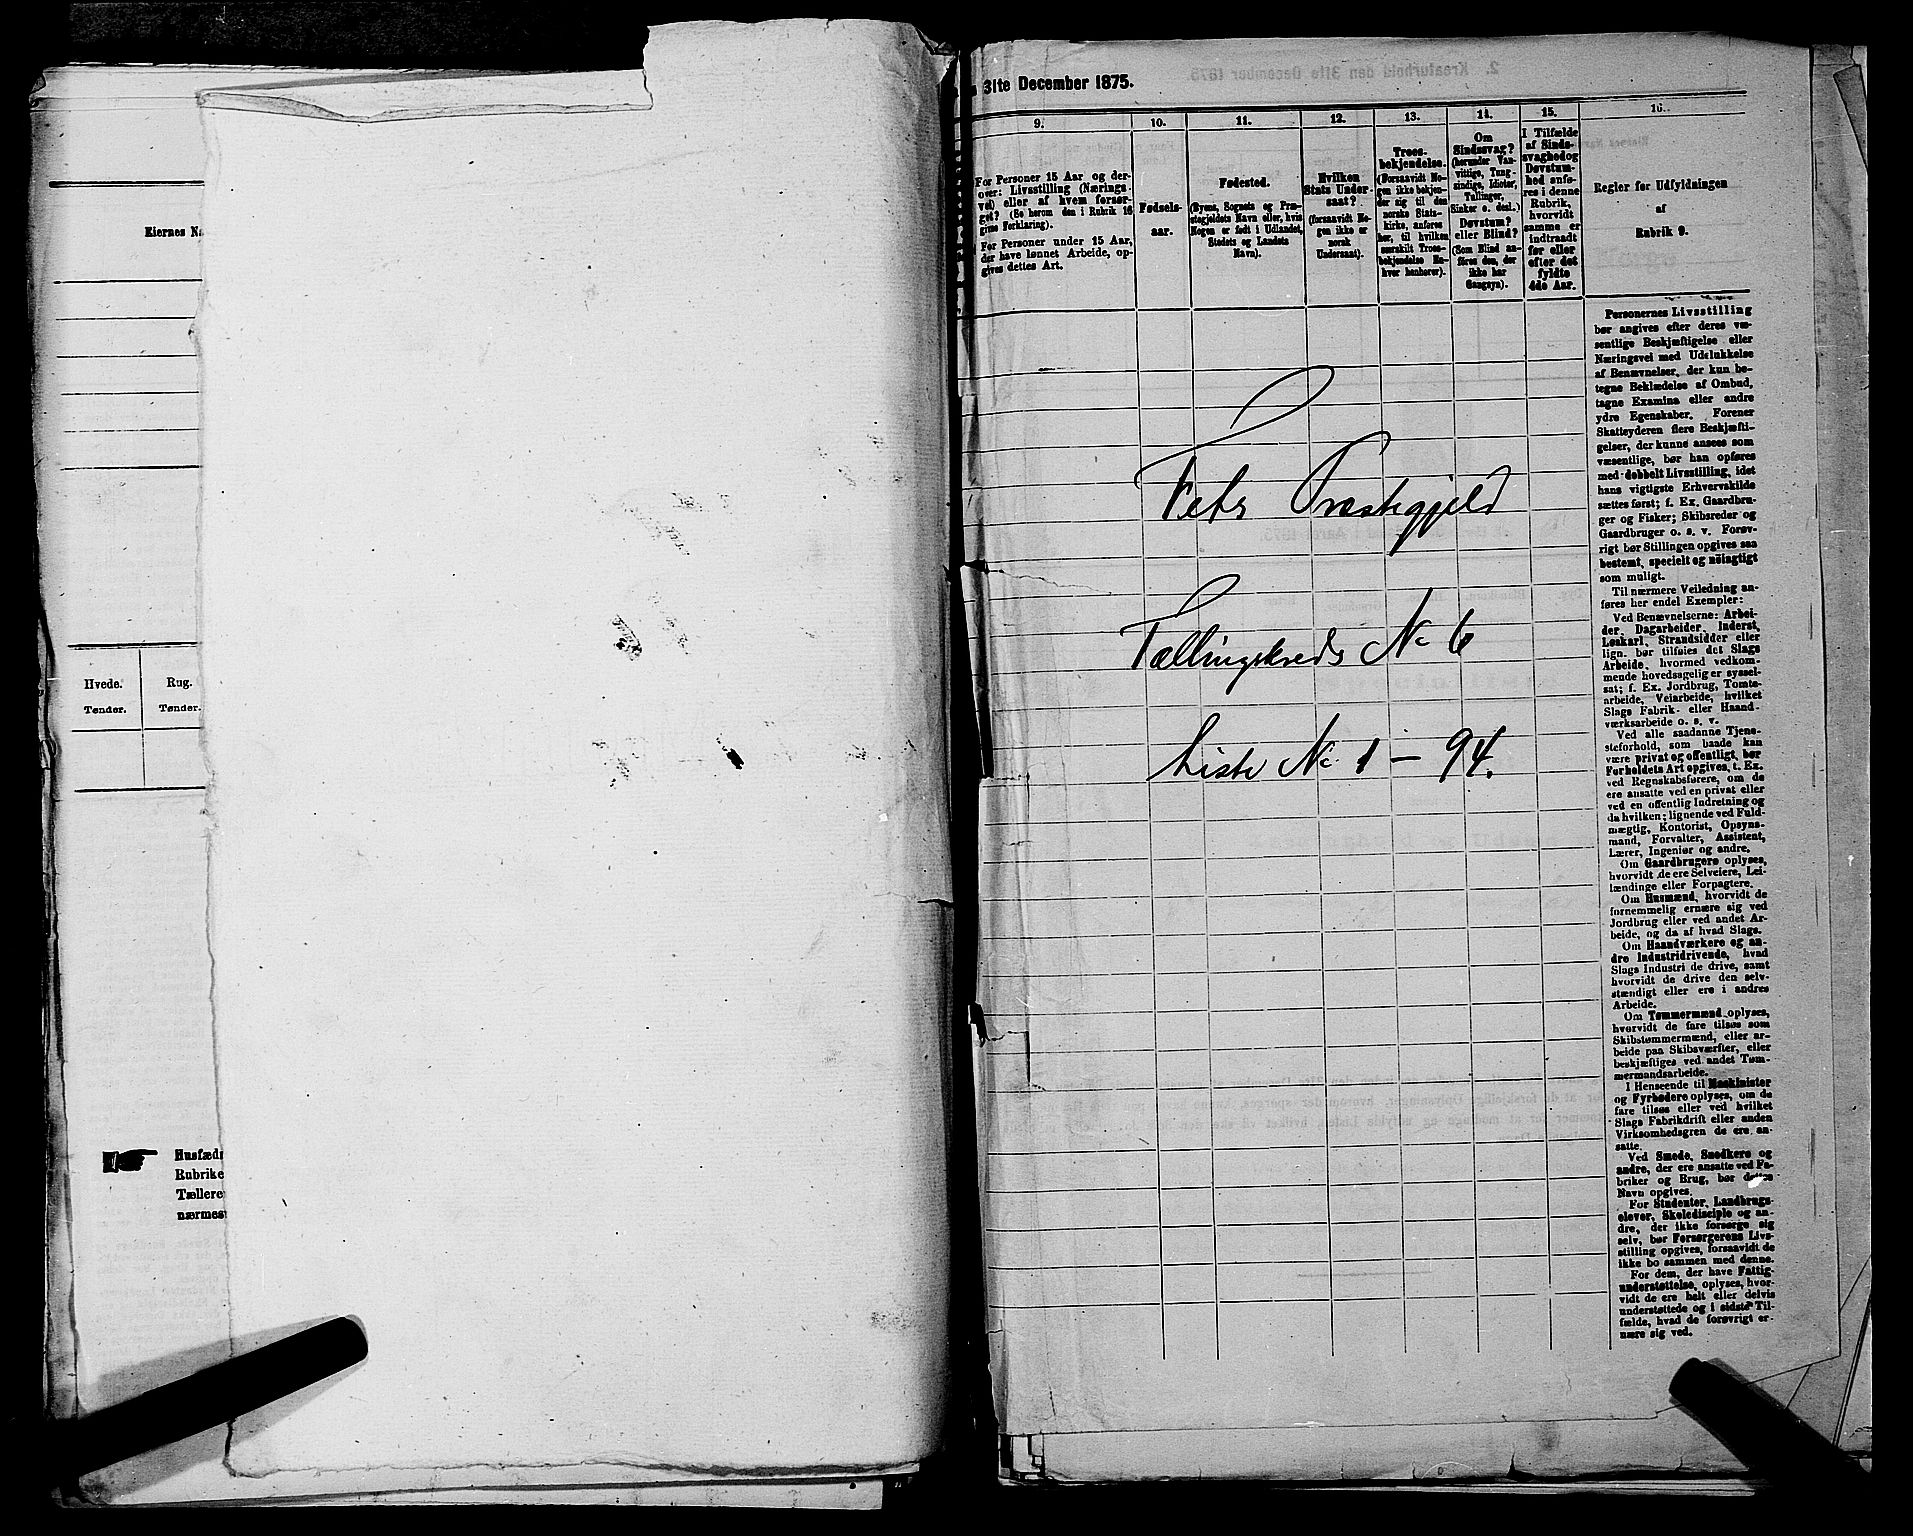 Eiernes Na
Hvede.
Rug.
Tønder.
Tønder.
Husfædr
Rubrike
Tællere
nærmest
31te December 1875.
9.
For Personer 15 Aar og der-
over: Livsstilling (Nærings-
vei) eller af hvem forsør-
get? (Se herom den i Rubrik 16
givne Forklaring).
For Personer under 15 Aar,
der have lønnet Arbeide, op-
gives dettes Art.
10.
Fødsels-
aar.
11.
Fødested.
(Byens, Sognets og Præ-
stegjeldets Navn eller, hvis
Nogen er født i Udlandet,
Stedets og Landets
Navn).
12.
Hvilken
Stats Under-
saat?
(forsaavidt No-
gen ikke er
norsk
Undersaat).
13.
Troes-
bekjendelse.
(Forsaavidt No-
gen ikke bekjen-
der sig til den
norske Stats-
kirke, anføres
her, til hvilken
særskilt Troes-
bekjendelse En-
hver henhører).
14.
Om
Sindssvag?
(herunder Van-
vittige, Tung-
sindige, Idioter,
Tullinger,
Sinker o. desl.)
Døvstum?
eller Blind?
(Som Blind an-
føres den, der
ikke har
Gangsyn).
15.
I Tilfælde
af Sinds-
svaghed og
Døvstum-
hed anfø-
res i denne
Rubrik,
hvorvidt
samme er
indtraadt
før eller
efter det
fyldte
4de Aar.
16.
Regler for Udfyldningen
af
Rubrik 9.
Fets Præstegjeld
Tællingskreds No 6
Liste No 1 – 94.
Personernes Livsstilling
bør angives efter deres væ-
sentlige Beskjæftigelse eller
Næringsvei med Udelukkelse
af Benævnelser, der kun be-
tegne Beklædelse af Ombud,
tagne Examina eller andre
ydre Egenskaber. Forener
Skatteyderen flere Beskjæfti-
gelser, der kunne ansees som
væsentlige, bør han opføres
med dobbelt Livsstilling, idet
hans vigtigste Erhvervskilde
sættes først; f. Ex. Gaardbru-
ger og Fisker; Skibsreder og
Gaardbruger o. s. v. Forøv-
rigt bør Stillingen opgives saa
bestemt, specielt og nöiagtigt
som muligt.
Til nærmere Veiledning an-
føres her endel Exempler:
Ved Benævnelserne: Arbei-
der, Dagarbeider, Inderst,
Løskarl, Strandsidder eller
lign. bør tilføies det Slags
Arbeide, hvormed vedkom-
mende hovedsagelig er syssel-
sat; f. Ex. Jordbrug, Tomte-
arbeide, Veiarbeide, hvilket
Slags Fabrik- eller Haand-
værksarbeide o. s. v.
Ved alle saadanne Tjene-
steforhold, som baade kan
være privat og offentligt, bør
Forholdets Art opgives, t. Ex.
ved Regnskabsførere, om de
ere ansatte ved en privat eller
ved en offentlig Indretning og
da hvilken; lignende ved Fuld-
mægtig, Kontorist, Opsyns-
mand, Forvalter, Assistent,
Lærer, Ingeniør og andre.
Om Gaardbrugere oplyses,
hvorvidt de ere Selveiere, Lei-
lændinge eller Forpagtere.
Om Husmænd, hvorvidt de
fornemmelig ernære sig ved
Jordbrug eller ved andet Ar-
beide, og da af hvad Slags.
Om Haandværkere og an-
dre Industridrivende, hvad
Slags Industri de drive, samt
hvorvidt de drive den selv-
stændigt eller ere i andres
Arbeide.
Om Tømmermænd oplyses,
hvorvidt de fare tilsøs som
Skibstømmermænd, eller ar-
beide paa Skibsværfter, eller
beskjæftiges ved andet Tøm-
mermandsarbeide.
I Henseende til Maskinister
og Fyrbødere oplyses, om de
fare tilsøs eller ved hvilket
Slags Fabrikdrift eller anden
Virksomhedsgren de ere an-
satte.
Ved Smede, Snedkere og
andre, der ere ansatte ved Fa-
briker og Brug, bør dettes
Navn opgives.
For Studenter, Landbrugs-
elever, Skoledisciple og an-
dre, der ikke forsørge sig
selv, bør Forsørgerens Livs-
stilling opgives, forsaavidt de
ikke bo sammen med denne.
For dem, der have Fattig-
understøttelse, oplyses, hvor-
vidt de ere helt eller delvis
understøttede og i sidste Til-
fælde, hvad de forøvrigt er-
nære sig ved.